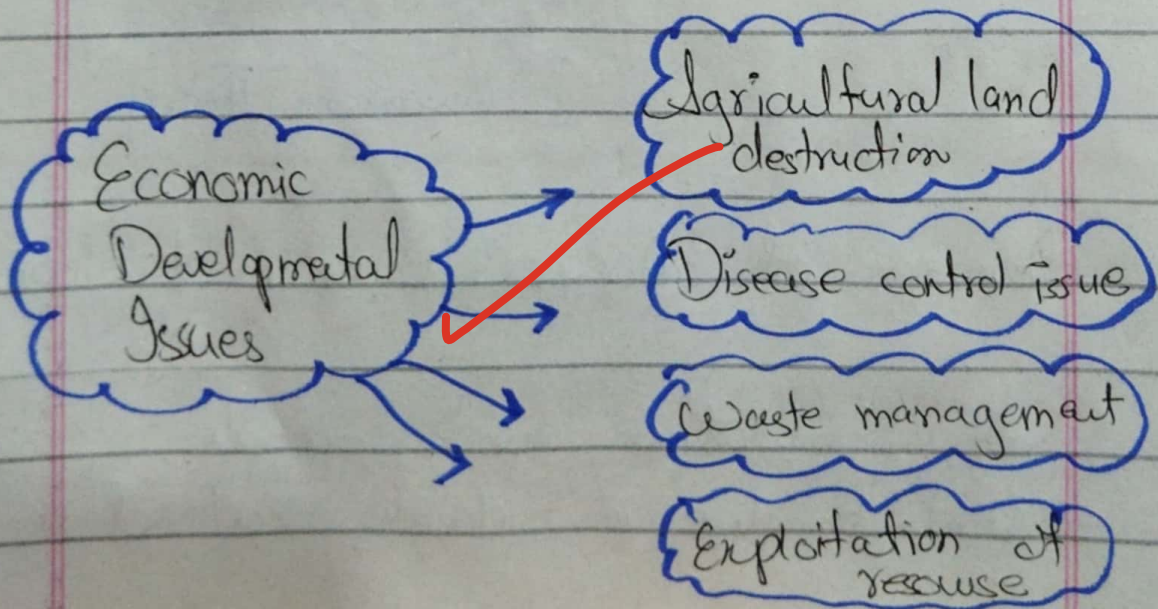 Economic
Developmetal
Issues
Agricultural land
destruction
Disease control issue
Waste management
Exploitation of
resouse